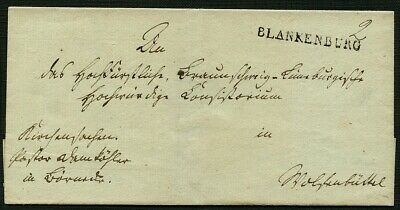 BLANKENBURG
2
An
das Hochfürstliche, Braunschweig-Lüneburgische
Hochwürdige Consistorium
in
Wolfenbüttel
Kirchensachen.
Pastor
in Börnecke